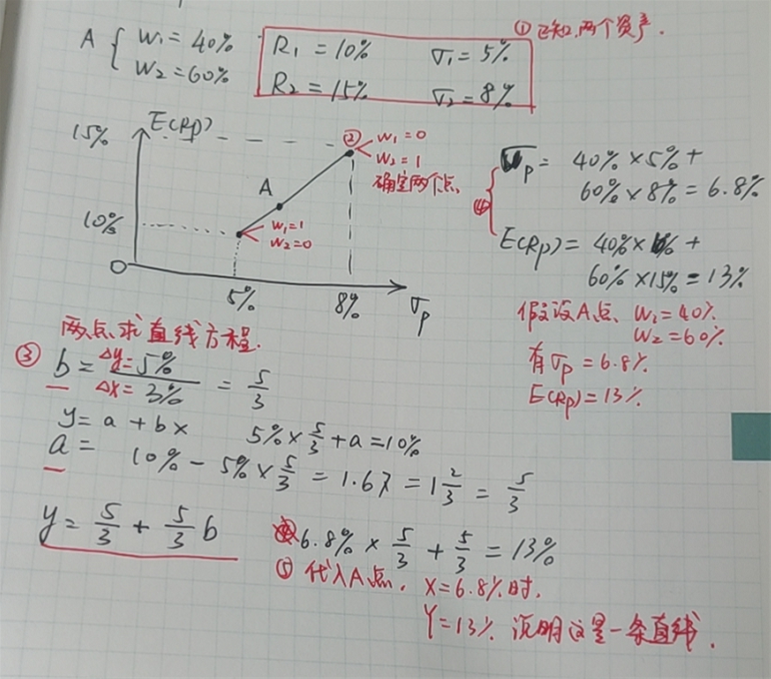 ① 已知,两个资产.
A { W₁ = 40%
W₂ = 60%
R₁ = 10% σ₁ = 5%
R₂ = 15% σ₂ = 8%
E(Rp)
15%
② W₁ = 0
W₂ = 1
确定两个点
A
10%
W₁=1
W₂=0
O
5%
8%
σp
④ { σp = 40% × 5% +
60% × 8% = 6.8%
E(Rp) = 40% × % +
60% × 15% = 13%
假设A点, W₁ = 40%
W₂ = 60%
有 σp = 6.8%
E(Rp) = 13%
两点求直线方程.
③ b = Δy = 5% / Δx = 3% = 5/3
y = a + bx 5% × 5/3 + a = 10%
a = 10% - 5% × 5/3 = 1.67 = 1 2/3 = 5/3
y = 5/3 + 5/3 b
6.8% × 5/3 + 5/3 = 13%
⑤ 代入A点, X = 6.8%时,
Y = 13% 说明这是一条直线.